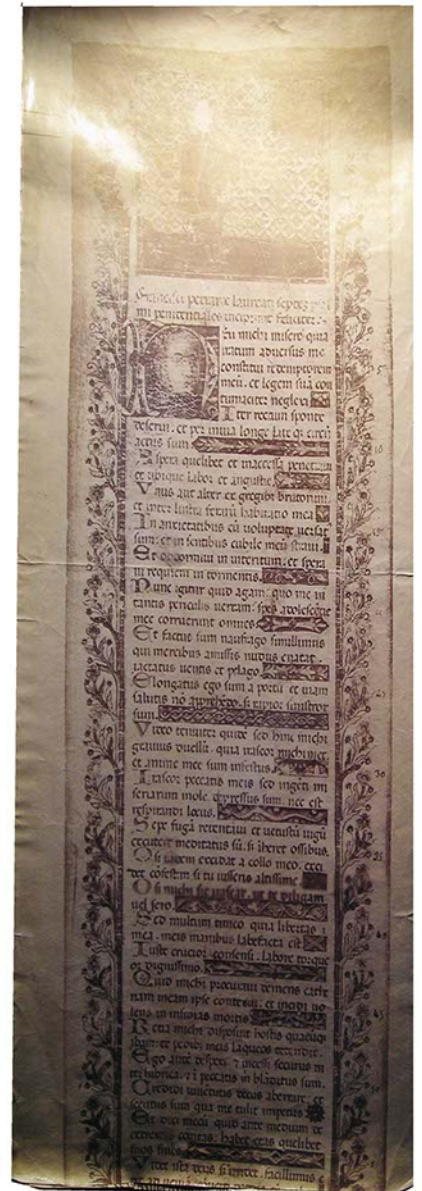 Francisci petrarce laureati septez p
mi penitenciales incipiunt feliciter.
Eu michi misero quia
iratum adversus me
constitui redemptorem
meū. et legem suā con
tumaciter neglexi
Iter rectum sponte
deserui. et per invia longe late qz circū
actus sum
Aspera quelibet et inaccessa penetravi
et ubique labor et angustie.
Unus aut alter ex gregibus brutorum.
et inter lustra ferarū habitatio mea
In anxietatibus cū voluptate versat
sum. et in sentibus cubile meū stravi.
Et obdormivi in interitum. et spera
vi requiem in tormentis.
Nunc igitur quid agam. quo me in
tantis periculis vertam. spes adolescentie
mee corruerunt omnes
Et factus sum naufrago simillimus
qui mercibus amissis nudus enatat.
iactatus ventis et pelago.
Elongatus ego sum a portu et viam
salutis nō apprehēdo. si rapior sinistror
sum.
Video tenuiter quidē sed hinc michi
gravius duellū. quia irascor michimet
et anime mee sum infestus.
Irascor peccatis meis sed ingēti mi
seriarum mole oppressus sum. nec est
respirandi locus.
Sepe fugā retentavi et vetustū iugū
excutere meditatus sū. sz inheret ossibus.
O si tandem excidat a collo meo. exci
det cōfestim si tu iusseris altissime.
O si michi sic irascar. ut te diligam
vel sero.
Sed multum timeo quia libertas
mea. meis manibus labefacta est
Iuste crucior consensi. labore torque
or dignissimo.
Quid michi procuravi demens cathe
nam meam ipse contexui. et incidi vo
lens in insidias mortis
Retia michi disposuit hostis quacūqz
ibam. et pedibz meis laqueos tetendit.
Ego autē despexi et incessi securus in
ter lubrica. et i peccatis mi blāditus sum.
Credidi iuventutis decus aberrare. et
secutus sum qua me tulit impetus
Et dixi mecū quid ante medium de
extremis cogitas. habet etas quelibet
suos fines
Videt ista deus sz irridet. facillimus